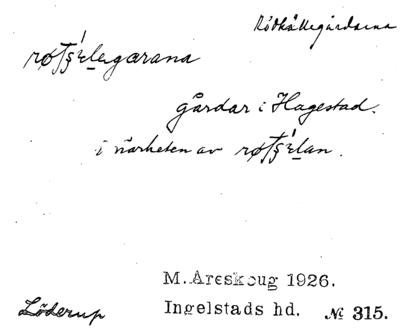 Rödkällegårdarna
røt̄ʂɛ́legærana
gårdar i Hagestad.
i närheten av røt̄ʂɛ́lan.
M. Areskoug 1926.
Löderup Ingelstads hd. № 315.